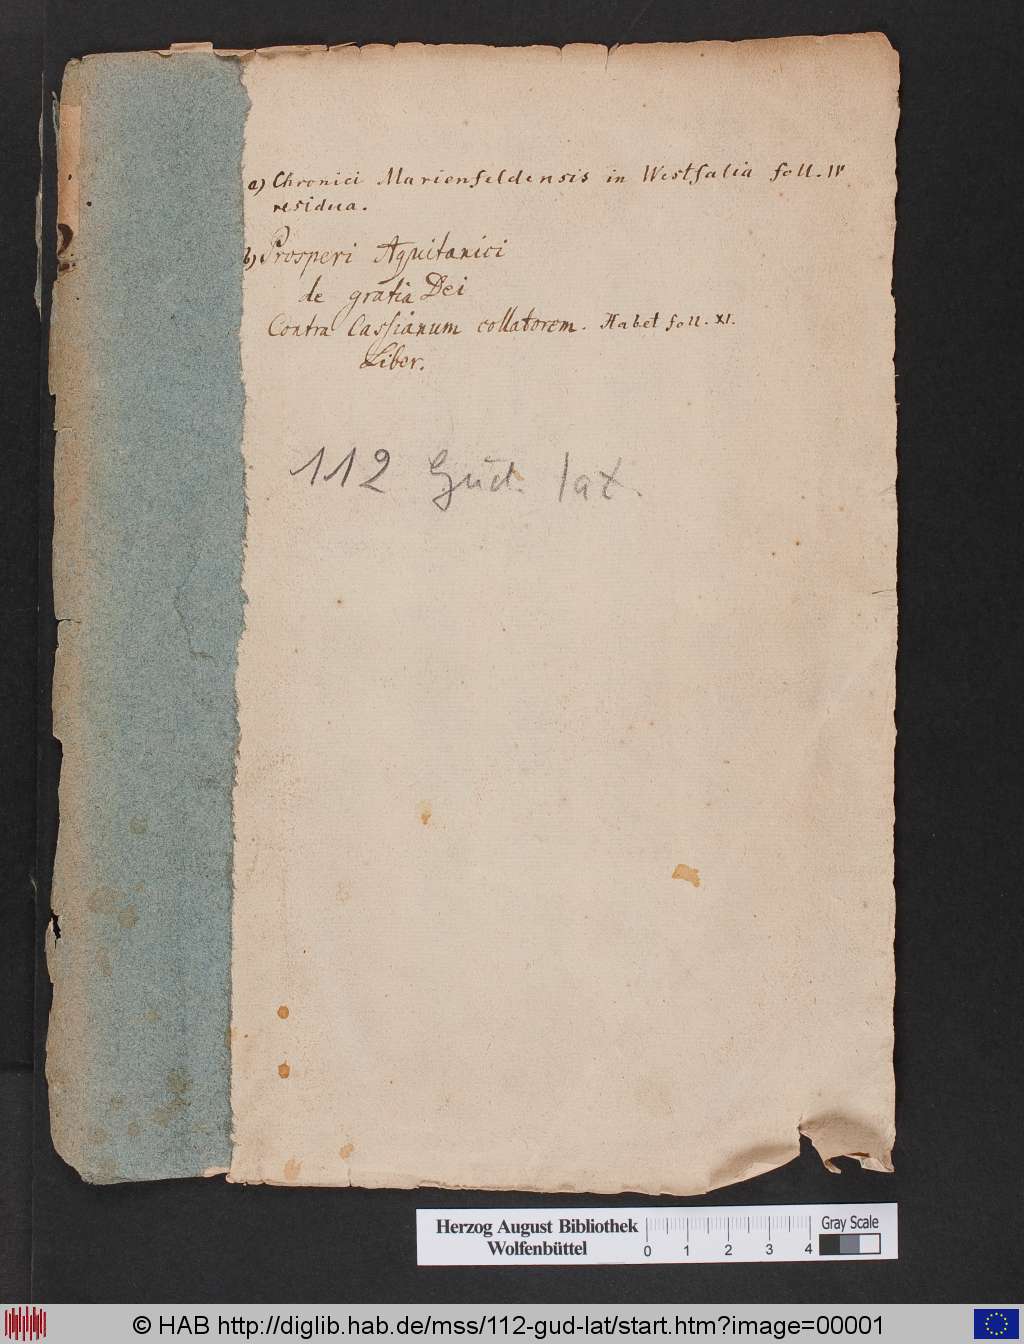 a) Chronici Marienfeldensis in Westfalia foll. IV
residua.
b) Prosperi Aquitanici
de gratia Dei
Contra Cassianum collatorem. Habet foll. XI.
Liber.
112 Gud. lat.
Herzog August Bibliothek
Wolfenbüttel
0 1 2 3 4
Gray Scale
© HAB http://diglib.hab.de/mss/112-gud-lat/start.htm?image=00001